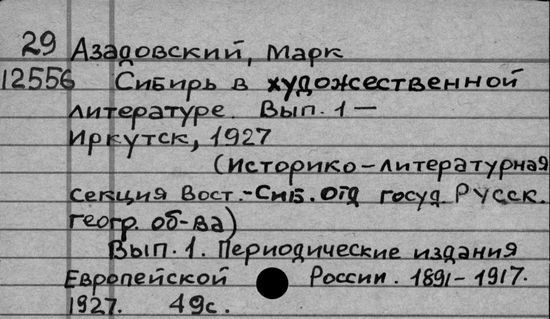 29 Азадовский, Марк
12556 Сибирь в художественной
литературе. Вып. 1 —
Иркутск, 1927
(Историко-литературная
секция Вост.-Сиб. отд госуд. Русск.
геогр. об-ва)
Вып. 1. Периодические издания
Европейской России. 1891-1917.
1927. 49с.